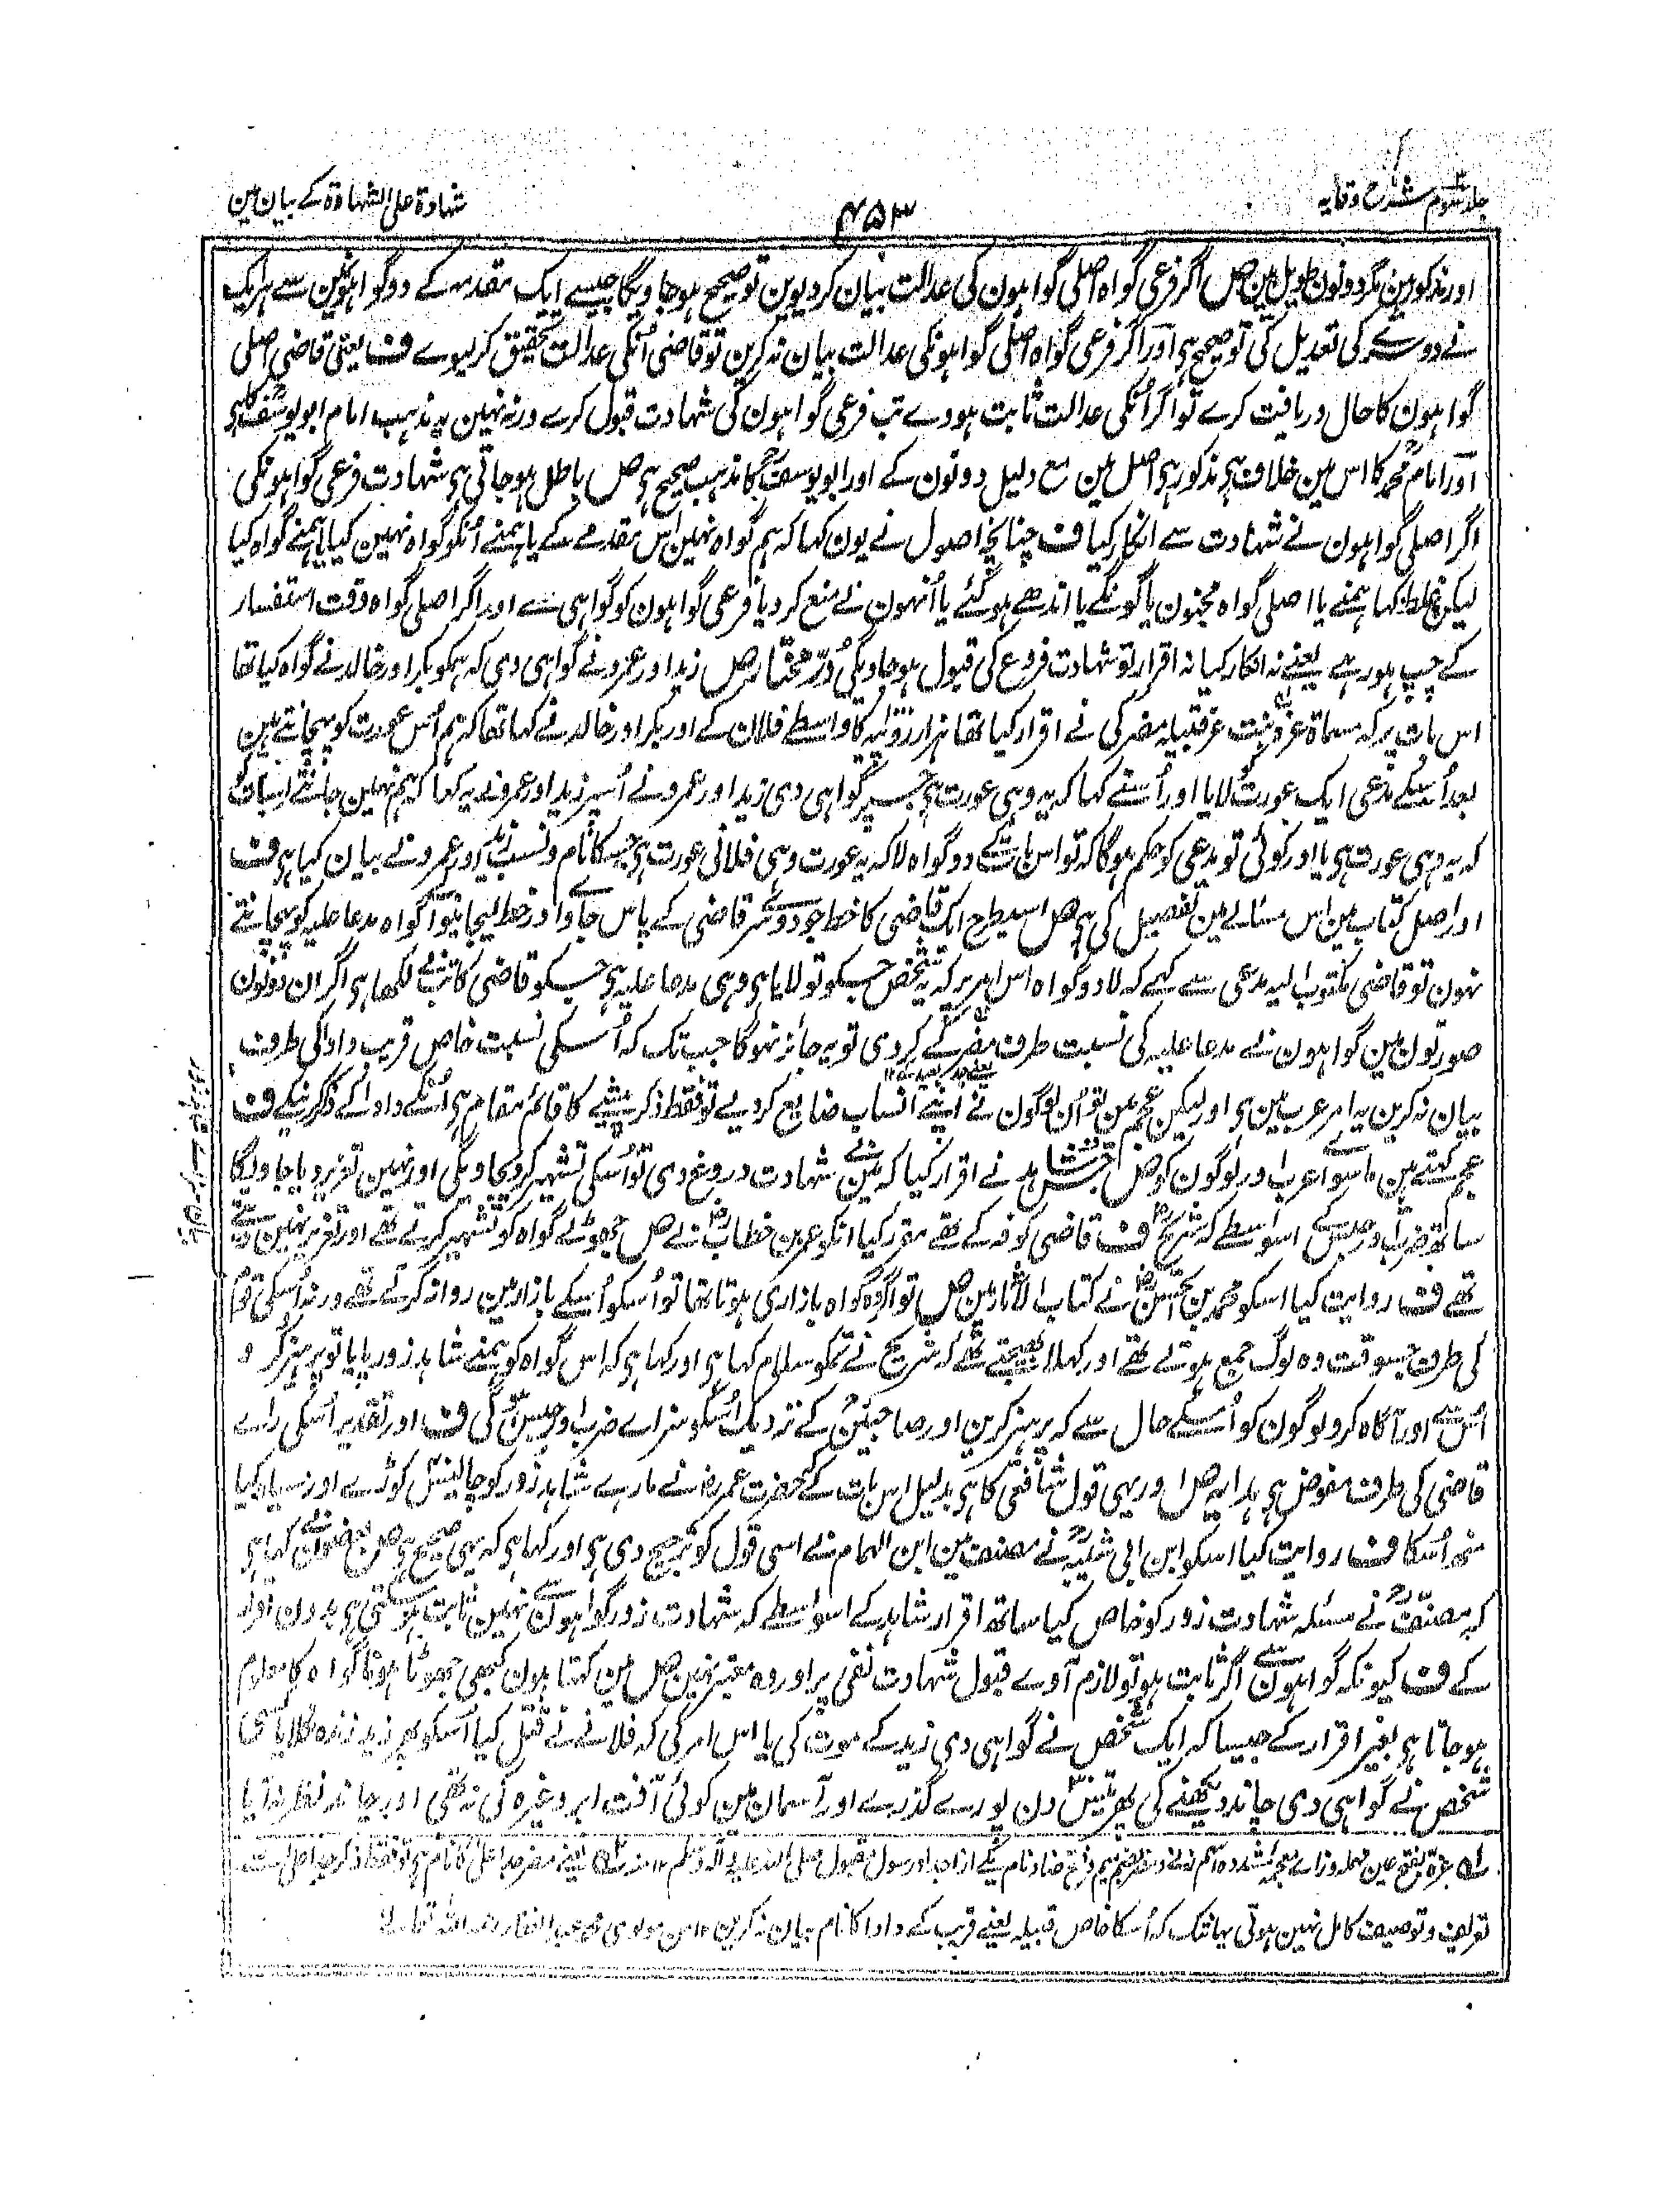 جلد سوم شرح وقایہ
۴۵۳
شہادۃ علی الشہادۃ کے بیان مین
اور مذکور ہین مگر دونون طویل ہین ص اگر فرعی گواہ اصلی گواہون کی عدالت بیان کر دیوین تو صحیح ہو جاویگا جیسے ایک مقدمہ کے دو گواہونمین سے ہر ایک
نے دوسرے کی تعدیل کی تو صحیح ہی اور اگر فرعی گواہ اصلی گواہونکی عدالت بیان نہ کرین تو قاضی اُنکی عدالت تحقیق کر لیوے ف یعنی قاضی اصلی
گواہون کا حال دریافت کرے تو اگر اُنکی عدالت ثابت ہووے تب فرعی گواہون کی شہادت قبول کرے ورنہ نہین یہ مذہب امام ابو یوسف کا ہی
اور امام محمد کا اس مین خلاف ہی مذکور ہی اصل مین مع دلیل دونون کے اور ابو یوسف کا مذہب صحیح ہی ص باطل ہو جاتی ہی شہادت فرعی گواہونکی
اگر اصلی گواہون نے شہادت سے انکار کیا ف چنانچہ اصول نے یون کہا کہ ہم گواہ نہین اس مقدمے کے یا ہمنے اُنکو گواہ نہین کیا یا ہمنے گواہ کیا
لیکن غلط کہا ہمنے یا اصلی گواہ مجنون یا گونگے یا اندھے ہو گئے یا اُنہون نے منع کر دیا فرعی گواہون کو گواہی سے اور اگر اصلی گواہ وقت استفسار
کے چپ ہو رہے یعنے نہ انکار کیا نہ اقرار تو شہادت فروع کی قبول ہو جاویگی دُرّ مختار ص زید اور عمرو نے گواہی دی کہ ہمکو بکر اور خالد نے گواہ کیا تھا
اس بات پر کہ مسماۃ عزہ بنت عز قبیلہ مضر کی نے اقرار کیا تھا ہزار روپیہ کا واسطے فلان کے اور بکر اور خالد نے کہا تھا کہ ہم اُس عورت کو پہچانتے ہین
بعد اُسکے مدعی ایک عورت لایا اور اُسنے کہا کہ یہ وہی عورت ہی جسپر گواہی دی زید اور عمرو نے اُسپر زید اور عمرو نے یہ کہا کہ ہم نہین جانتے اسبات کو
کہ یہ وہی عورت ہی یا اور کوئی تو مدعی کو حکم ہوگا کہ تو اس بات کے دو گواہ لا کہ یہ عورت وہی فلانی عورت ہی جسکا نام و نسب زید اور عمرو نے بیان کیا ہی ف
اور اصل کتاب مین اس مسئلے مین تفصیل کی ہی ص اسیطرح ایک قاضی کا خط جو دوسرے قاضی کے پاس جاوے اور خط لیجانیوالے گواہ مدعا علیہ کو پہچانتے
نہون تو قاضی مکتوب الیہ مدعی سے کہے کہ لا دو گواہ اس امر پر کہ یہ شخص جسکو تو لایا ہی وہی مدعا علیہ ہی جسکو قاضی کاتب نے لکھا ہی اگر ان دونون
صورتون مین گواہون نے مدعا علیہ کی نسبت طرف مضر کے کر دی تو یہ جائز نہوگا جب تک کہ اُسکی نسبت خاص قریب دادا کی طرف
بیان نہ کرین یہ امر عرب مین ہی اور لیکن عجم مین تو اُن لوگون نے اپنے انساب ضایع کر دیے تو فقط ذکر پیشے کا قائم مقام ہی اُنکے دادا کے ذکر کرنیکے ف
عجم کہتے ہین ماسواے عرب اور لوگون کو ص جس شاہد نے اقرار کیا کہ مین نے شہادت دروغ دی تو اُسکی تشہیر کر دیجاویگی اور نہین تعزیر دیا جاویگا
ساتھ ضرب اور حبس کے اسواسطے کہ شریح ف قاضی کوفہ کے تھے مقرر کیا انکو عمر بن خطاب نے ص جھوٹے گواہ کو تشہیر کرتے تھے اور تعزیر نہین دیتے
تھے ف روایت کیا اسکو محمد بن حسن نے کتاب الآثار مین ص تو اگر وہ گواہ بازاری ہوتا تھا تو اُسکو اُسکے بازار مین روانہ کرتے تھے ورنہ اُسکی قوم
کی طرف جسوقت وہ لوگ جمع ہوتے تھے اور کہلا بھیجتے تھے کہ شریح نے تمکو سلام کہا ہی اور کہا ہی کہ اس گواہ کو ہمنے شاہد زور پایا تو پرہیز کرو
اُس سے اور آگاہ کرو لوگون کو اُسکے حال سے کہ پرہیز کرین اور صاحبین کے نزدیک اُسکو سزاے ضرب اور حبس ہوگی ف اور تقدیر اُسکی راے
قاضی کی طرف مفوض ہی ہدایہ ص اور یہی قول شافعی کا ہی بدلیل اس بات کے کہ حضرت عمر نے مارے شاہد زور کو چالیس کوڑے اور سیاہ کیا
منھ اُسکا ف روایت کیا اسکو ابن ابی شیبہ نے مصنف مین ابن الہمام نے اسی قول کو ترجیح دی ہی اور کہا ہی کہ یہی صحیح ہی ص بعضون نے کہا ہی
کہ مصنف نے مسئلہ شہادت زور کو خاص کیا ساتھ اقرار شاہد کے اسواسطے کہ شہادت زور گواہون سے نہین ثابت ہو سکتی ہی بدون اقرار
کے ف کیونکہ گواہون سے اگر ثابت ہو تو لازم آوے قبول شہادت نفی پر اور وہ معتبر نہین ص مین کہتا ہون کبھی جھوٹا ہونا گواہ کا معلوم
ہو جاتا ہی بغیر اقرار کے جیسا کہ ایک شخص نے گواہی دی زید کے موت کی یا اس امر کی کہ فلانے نے قتل کیا اُسکو پھر زید زندہ نکلا یا کسی
شخص نے گواہی دی چاند دیکھنے کی پھر تیس دن پورے گذرے اور آسمان مین کوئی آفت ابر وغیرہ کی نہ تھی اور چاند نظر نہ آیا
عزہ بفتح عین مہملہ و زاے معجمہ مشدده اسم زنے و مضر بضم میم و فتح ضاد نام یکے از اجداد رسول مقبول صلی اللہ علیہ وآلہ وسلم ۱۲ یعنے مضر جد اعلی کا نام ہی تو فقط ذکر جد اعلی سے
تعریف و توصیف کامل نہین ہوتی یہانتک کہ اُسکا خاص قبیلہ یعنے قریب کے دادا کا نام بیان نہ کرین ۱۲ من مولوی محمد عبد الغفار رحمہ اللہ تعالے